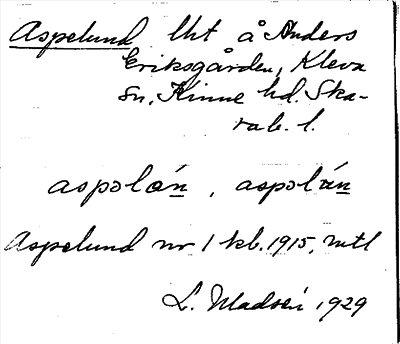 Aspelund lht å Anders
Eriksgården, Kleva
sn, Kinne hd. Ska-
rab. l.
aspəlœn, aspəlun
Aspelund nr 1 kb. 1915, mtl
L. Madsén 1929